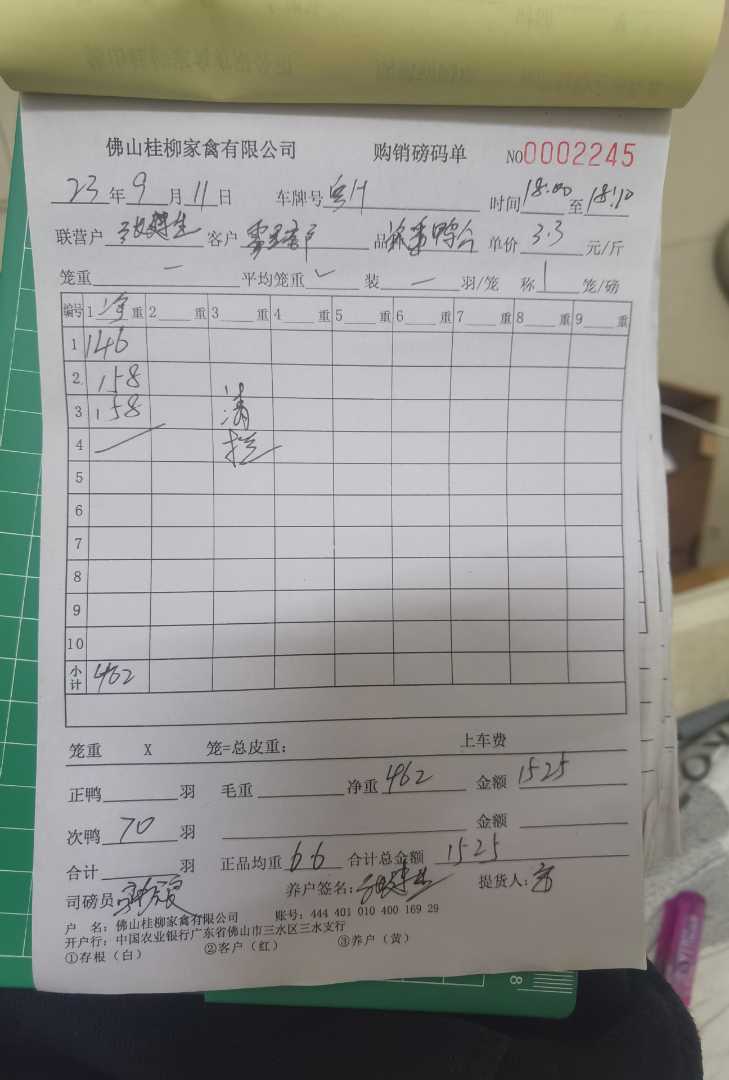 佛山桂柳家禽有限公司 购销磅码单 NO0002245
23年9月11日 车牌号 时间18:00至18:10
联营户 客户 品 单价3.3元/斤
笼重一 平均笼重 装一羽/笼 称1笼/磅
编号 1净重 2重 3重 4重 5重 6重 7重 8重 9重
1 146
2 158
3 158 清
4 栏
5
6
7
8
9
10
小计 462
笼重 X 笼=总皮重: 上车费
正鸭 羽 毛重 净重462 金额1525
次鸭70羽 金额
合计 羽 正品均重6.6 合计总金额1525
司磅员 养户签名: 提货人:
户 名: 佛山桂柳家禽有限公司 账号: 444 401 010 400 169 29
开户行: 中国农业银行广东省佛山市三水区三水支行
①存根(白) ②客户(红) ③养户(黄)